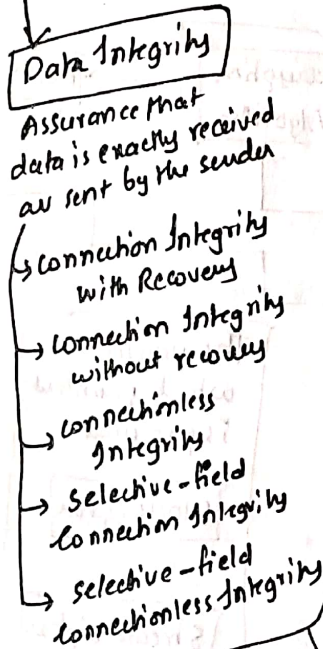 Data Integrity
Assurance that
data is exactly received
as sent by the sender
Connection Integrity
with Recovery
Connection Integrity
without recovery
Connectionless
Integrity
Selective-field
Connection Integrity
Selective-field
Connectionless Integrity